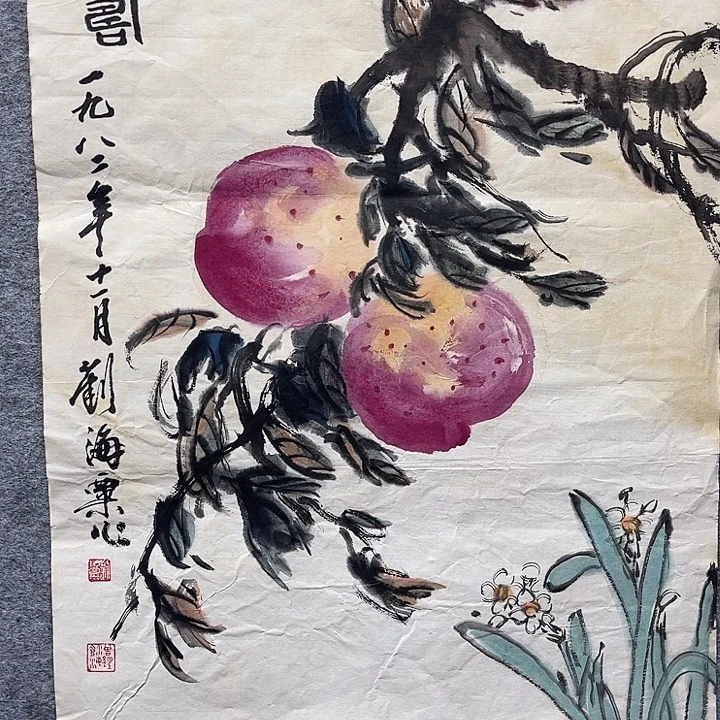 一九八二年十一月劉海粟